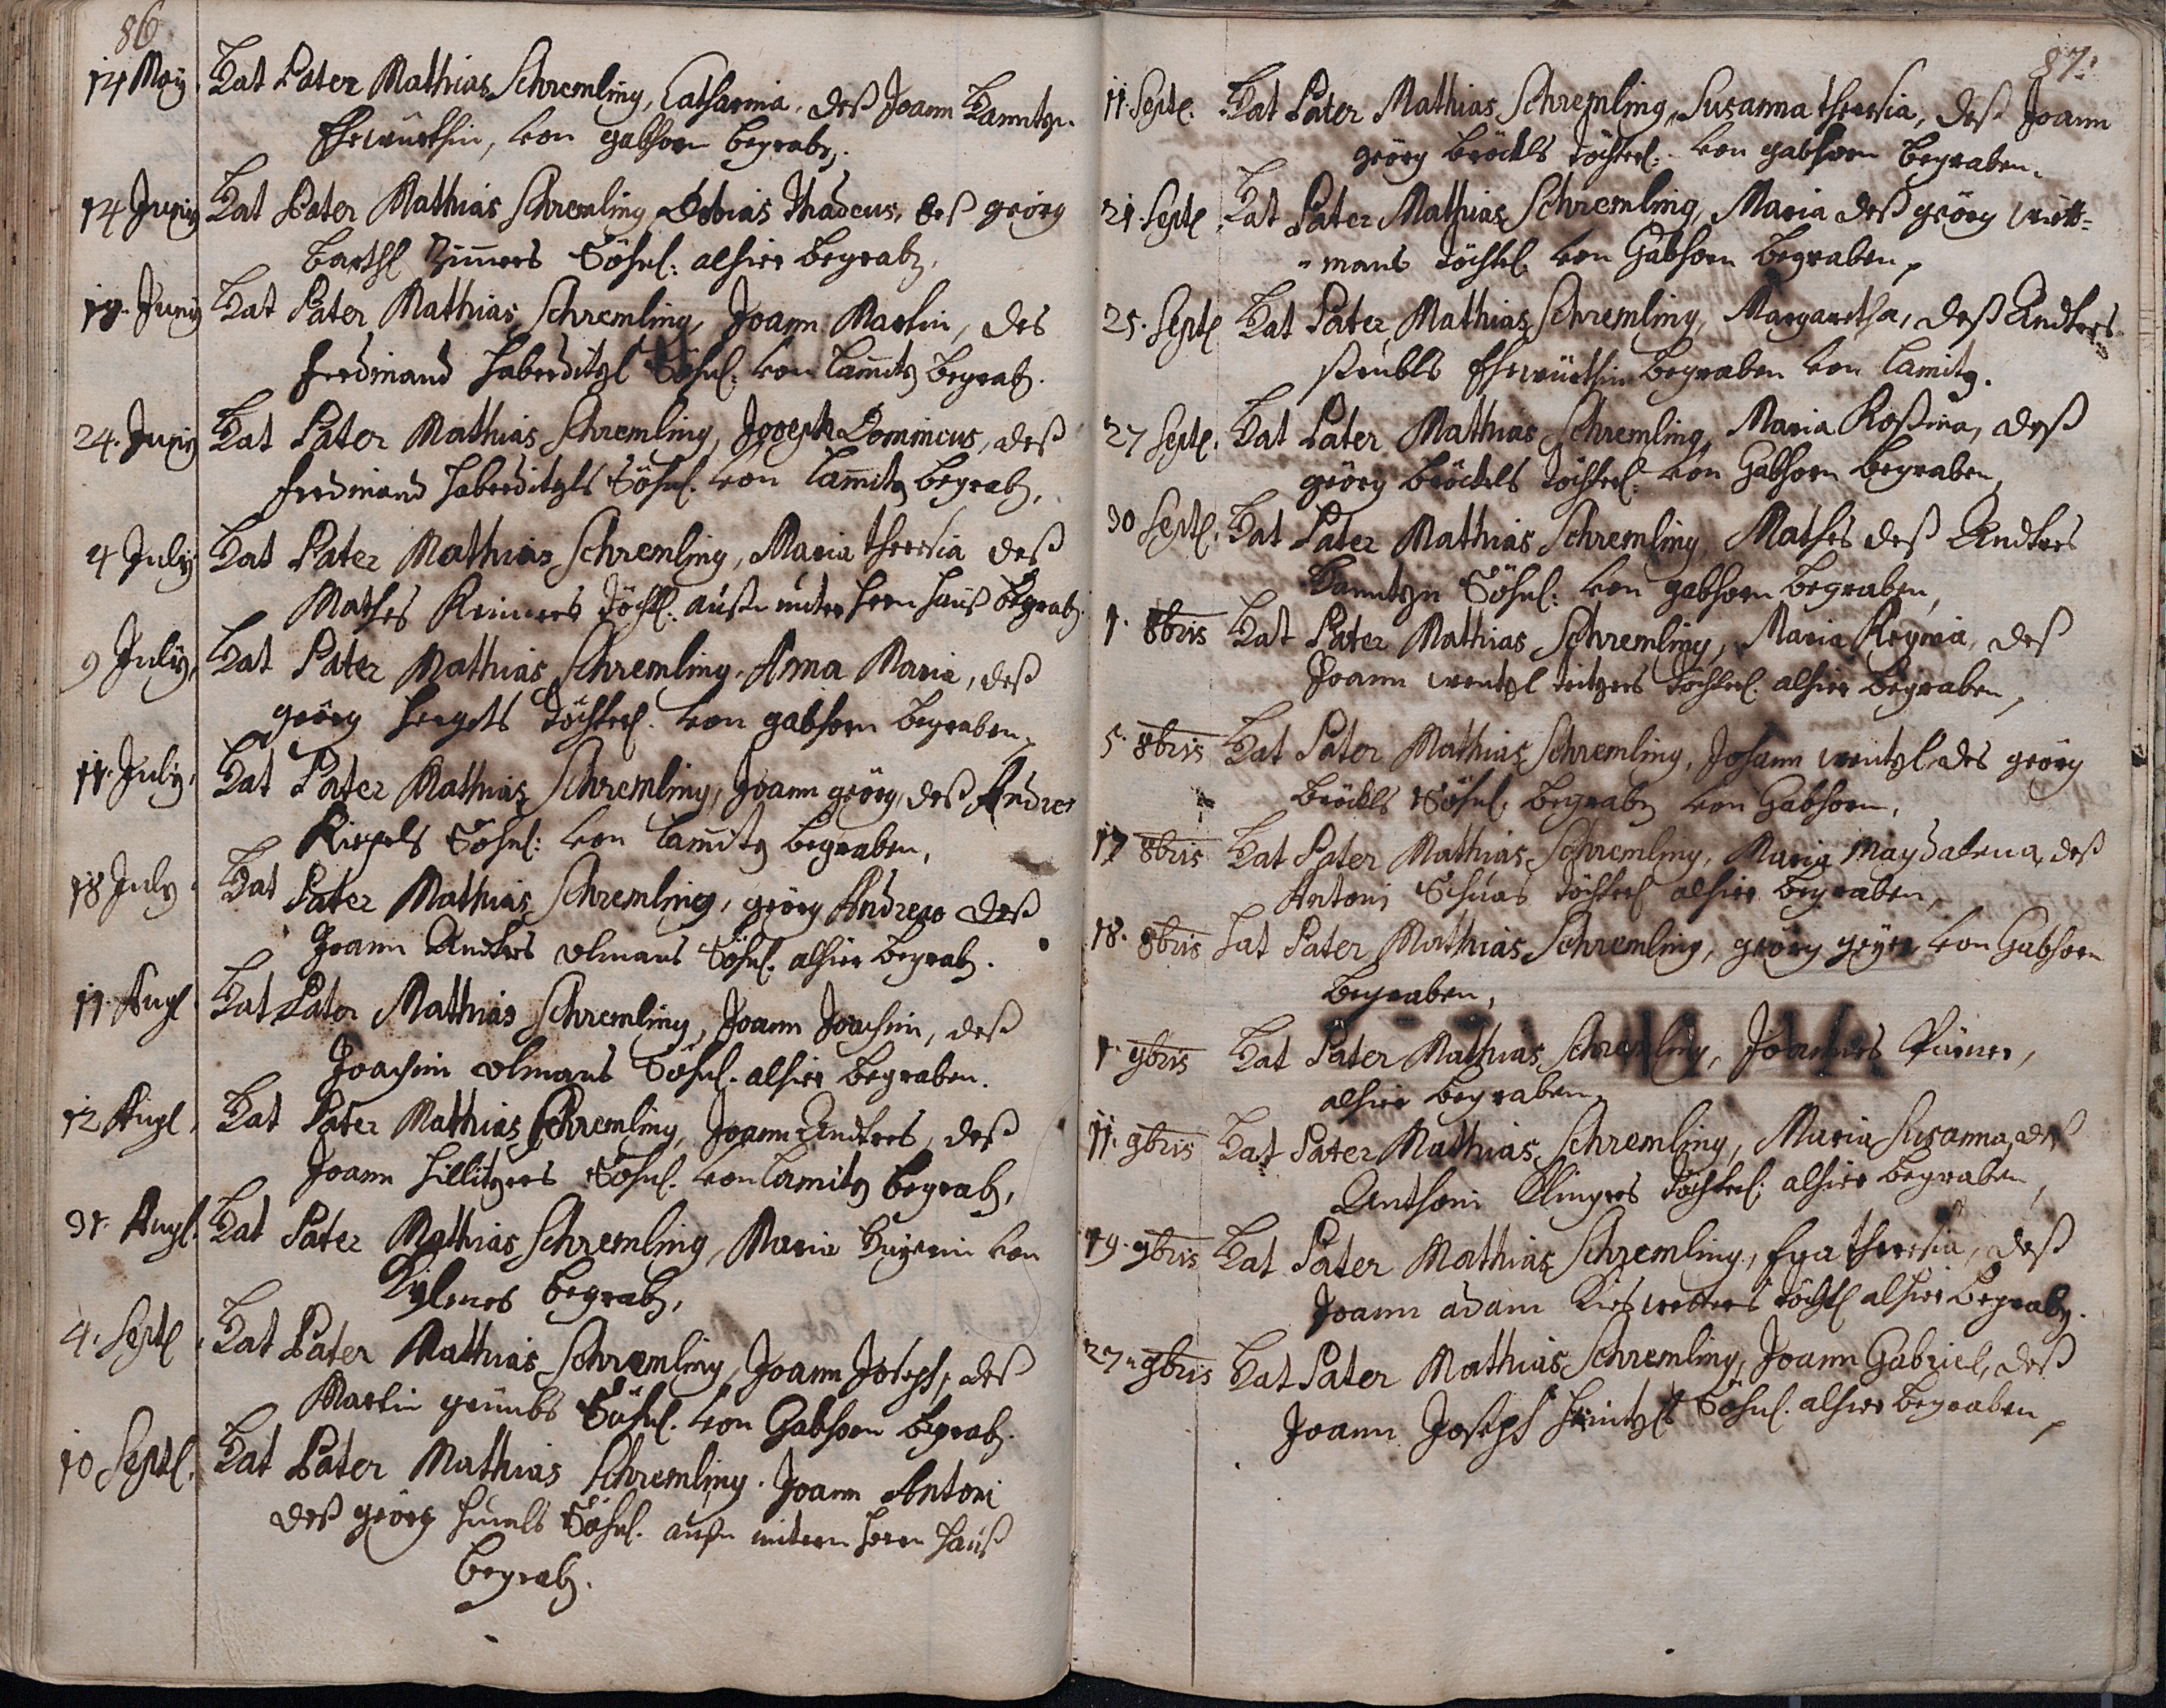 86
14 Maÿ. Hat Pater Mathias Schremling, Catharina, deß Joann
Ehewürthin, von gabhorn begrab.
14 Junÿ Hat Pater Mathias Schremling Tobias Thadeus, deß georg
Barthl Söhnl: alhier begrab.
19. Junÿ Hat Pater Mathias Schremling, Joann Martin, des
Ferdinand Haberditzl Söhnl: von Lam̄itz begrab.
24. Junÿ Hat Pater Mathias Schremling, Joseph Domincus, deß
Ferdinand Haberditzls Söhnl. von Lam̄itz begrab.
4 Julÿ Hat Pater Mathias Schremling, Maria Theresia deß
Mathes töchtl. außn unter Hern hauß begrab.
9 Julÿ. Hat Pater Mathias Schremling, Anna Maria, deß
geörg Hergets töchterl. von gabhorn begraben.
11. Julÿ. Hat Pater Mathias Schremling, Joann geörg, deß Andres
Söhnl: von Lam̄itz begraben,
18 July. Hat Pater Mathias Schremling, geörg Andreas deß
Joann Andres Ulmans Söhnl. alhier begrab.
11. Augl. Hat Pater Mathias Schremling, Joann Joachim, deß
Joachim Ulmans Söhnl. alhier begraben.
12 Augl. Hat Pater Mathias Schremling, Joann Andres, deß
Joann Hillitzers Söhnl. von Lamitz begrab,
31. Augl. Hat Pater Mathias Schremling, Maria von
begrab,
4. Septl. Hat Pater Mathias Schremling, Joann Joseph, deß
Martin Söhnl. von Gabhorn begrab.
10 Septl. Hat Pater Mathias Schremling. Joann Antoni
deß geörg Söhnl. außn untern Hern hauß
begrab.
87.
11. Septl. Hat Pater Mathias Schremling, Susanna Theresia, deß Joann
geörg Bröckls töchterl: von gabhorn begraben.
21. Septl. Hat Pater Mathias Schremling, Maria deß geörg Witt=
=mans töchtl. von Gabhorn begraben,
25. Septl Hat Pater Mathias Schremling, Margaretha, deß Andres
Ehewürthin begraben von Lamitz.
27 Septl. Hat Pater Mathias Schremling, Maria Roßina, deß
geörg Bröckels töchterl: von Gabhorn begraben,
30 Septl. Hat Pater Mathias Schremling, Mathes deß Andres
Söhnl: von gabhorn begraben,
1. 8bris Hat Pater Mathias Schremling, Maria Regina, deß
Joann Wentzl töchterl. alhier begraben,
5. 8bris Hat Pater Mathias Schremling, Johann Wentzl des geörg
Bröckls Söhnl. begrab von Gabhorn,
17 8bris Hat Pater Mathias Schremling, Maria Magdalena, deß
Antoni töchterl alhier begraben,
18. 8bris Hat Pater Mathias Schremling, geörg geÿer von Gabhorn
begraben,
1. 9bris Hat Pater Mathias Schremling, Joannes
alhier begraben.
11. 9bris Hat Pater Mathias Schremling, Maria Susanna, deß
Anthoni Klingers töchterl. alhier begraben,
19. 9bris Hat Pater Mathias Schremling, Eva Theresia, deß
Joann adam Kieswetters töchtl alhier begrab.
27. 9bris Hat Pater Mathias Schremling, Joann Gabriel, deß
Joann Joseph Heintzls Söhnl. alhier begraben,